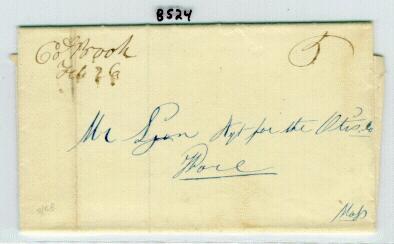 8524
Colbrook
Feb 26
5
Mr Lyon Agt for the Otis Co
Ware
Mass